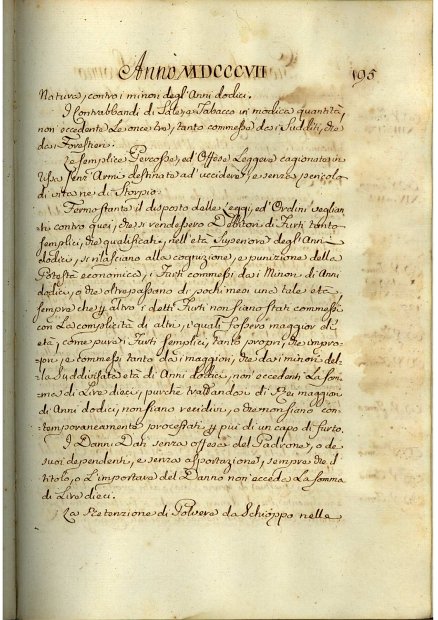 Anno MDCCCVII
195
Natura, contro i minori degl'Anni dodici.
I Contrabbandi di Sale, e Tabacco in modica quantità,
non eccedente le once tre, tanto commesse dai Sudditi, che
dai Forestieri.
Le semplici Percosse, ed Offese Leggere cagionate in
Rissa senz'Armi destinate ad uccidere, e senza pericolo
di vita ne di Storpio.
Fermo stante il disposto delle Leggi, ed Ordini veglian-
ti contro quei, che si rendessero Debitori di Furti tanto
semplici, che qualificati, nell'età Superiore degl'Anni
dodici, si rilasciano alla cognizione, e punizione della
Potestà economica, i Furti commessi dai Minori di Anni
dodici, o che oltrepassano di pochi mesi una tale età,
sempre che p altro i detti Furti non siano stati commessi
con la complicità di altri, i quali fossero maggiori di
età, come pure i Furti semplici, tanto proprj, che impro-
prj, e commessi tanto dai maggiori, che dai minori del-
la Suddivisata età di Anni dodici, non eccedenti la som-
ma di Lire dieci, purchè trattandosi di Rei maggiori
di Anni dodici, non siano recidivi, o che non siano con-
temporaneamente processati p più di un capo di furto.
I Danni Dati senza offesa del Padrone, o de
suoi dependenti, e senza asportazione, sempre che il
titolo, o l'importare del Danno non ecceda la somma
di Lire dieci.
La Retenzione di Polvere da Schioppo nelle